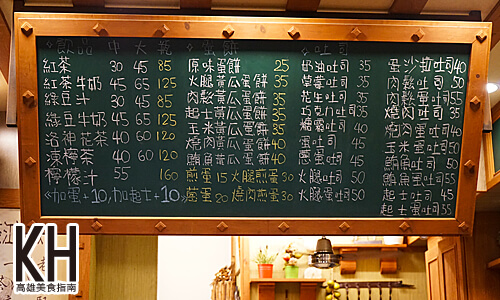 飲品 中 大 瓶
紅茶 30 45 85
紅茶牛奶 45 65 125
綠豆汁 30 45 85
綠豆牛奶 45 65 125
洛神花茶 40 60 120
凍檸茶 40 60 120
檸檬汁 55 160
加蛋+10,加起士+10
蛋餅
原味蛋餅 25
火腿黃瓜蛋餅 35
肉鬆黃瓜蛋餅 35
起士黃瓜蛋餅 35
玉米黃瓜蛋餅
燒肉黃瓜蛋餅
鮪魚黃瓜蛋餅
煎蛋15 火腿煎蛋30
蔥蛋20 燒肉煎蛋30
吐司
奶油吐司 35
草莓吐司 35
花生吐司 35
巧克力吐司 35
煉乳吐司
蛋吐司
玉米蛋吐司
火腿吐司 50
火腿蛋吐司
蛋沙拉吐司40
肉鬆吐司 45
肉鬆蛋吐司55
燒肉吐司
燒肉蛋吐司
鮪魚吐司 45
鮪魚蛋吐司55
起士吐司 45
起士蛋吐司55
KH
高雄美食指南